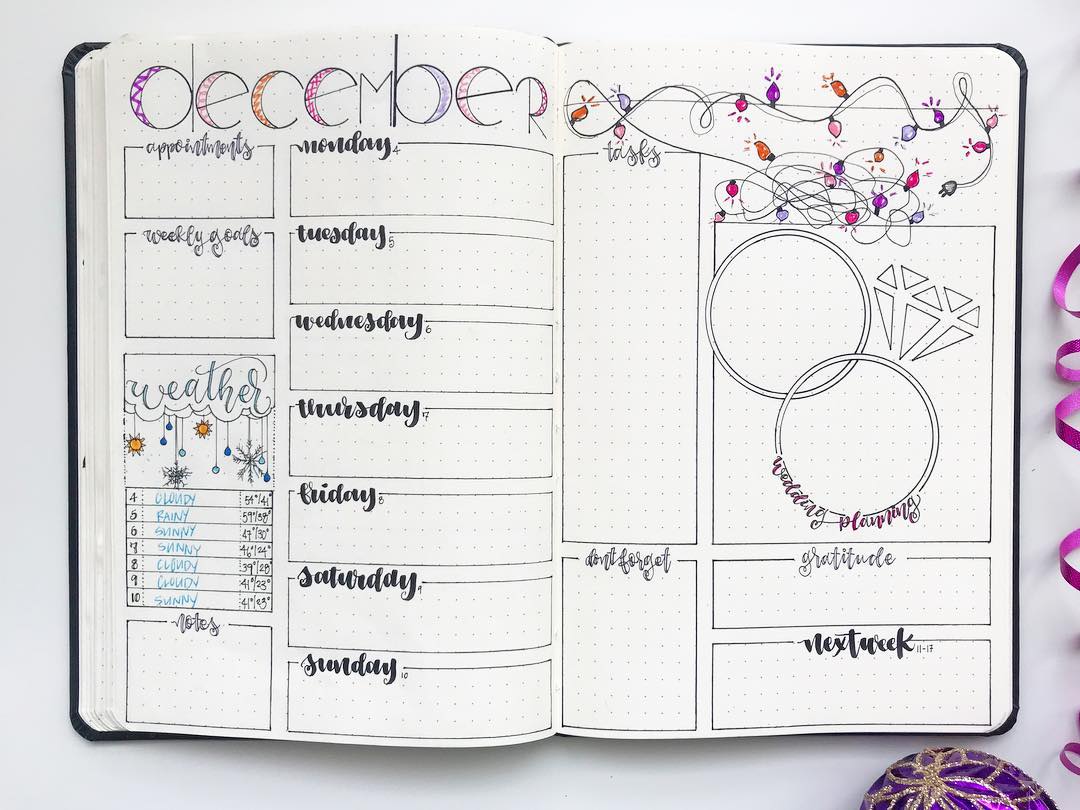 december
appointments
weekly goals
weather
4 CLOUDY 54°/41°
5 RAINY 59°/38°
6 SUNNY 47°/30°
7 SUNNY 46°/24°
8 CLOUDY 39°/28°
9 CLOUDY 41°/23°
10 SUNNY 41°/33°
notes
monday 4
tuesday 5
wednesday 6
thursday 7
friday 8
saturday 9
sunday 10
tasks
don't forget
wedding planning
gratitude
next week 11-17